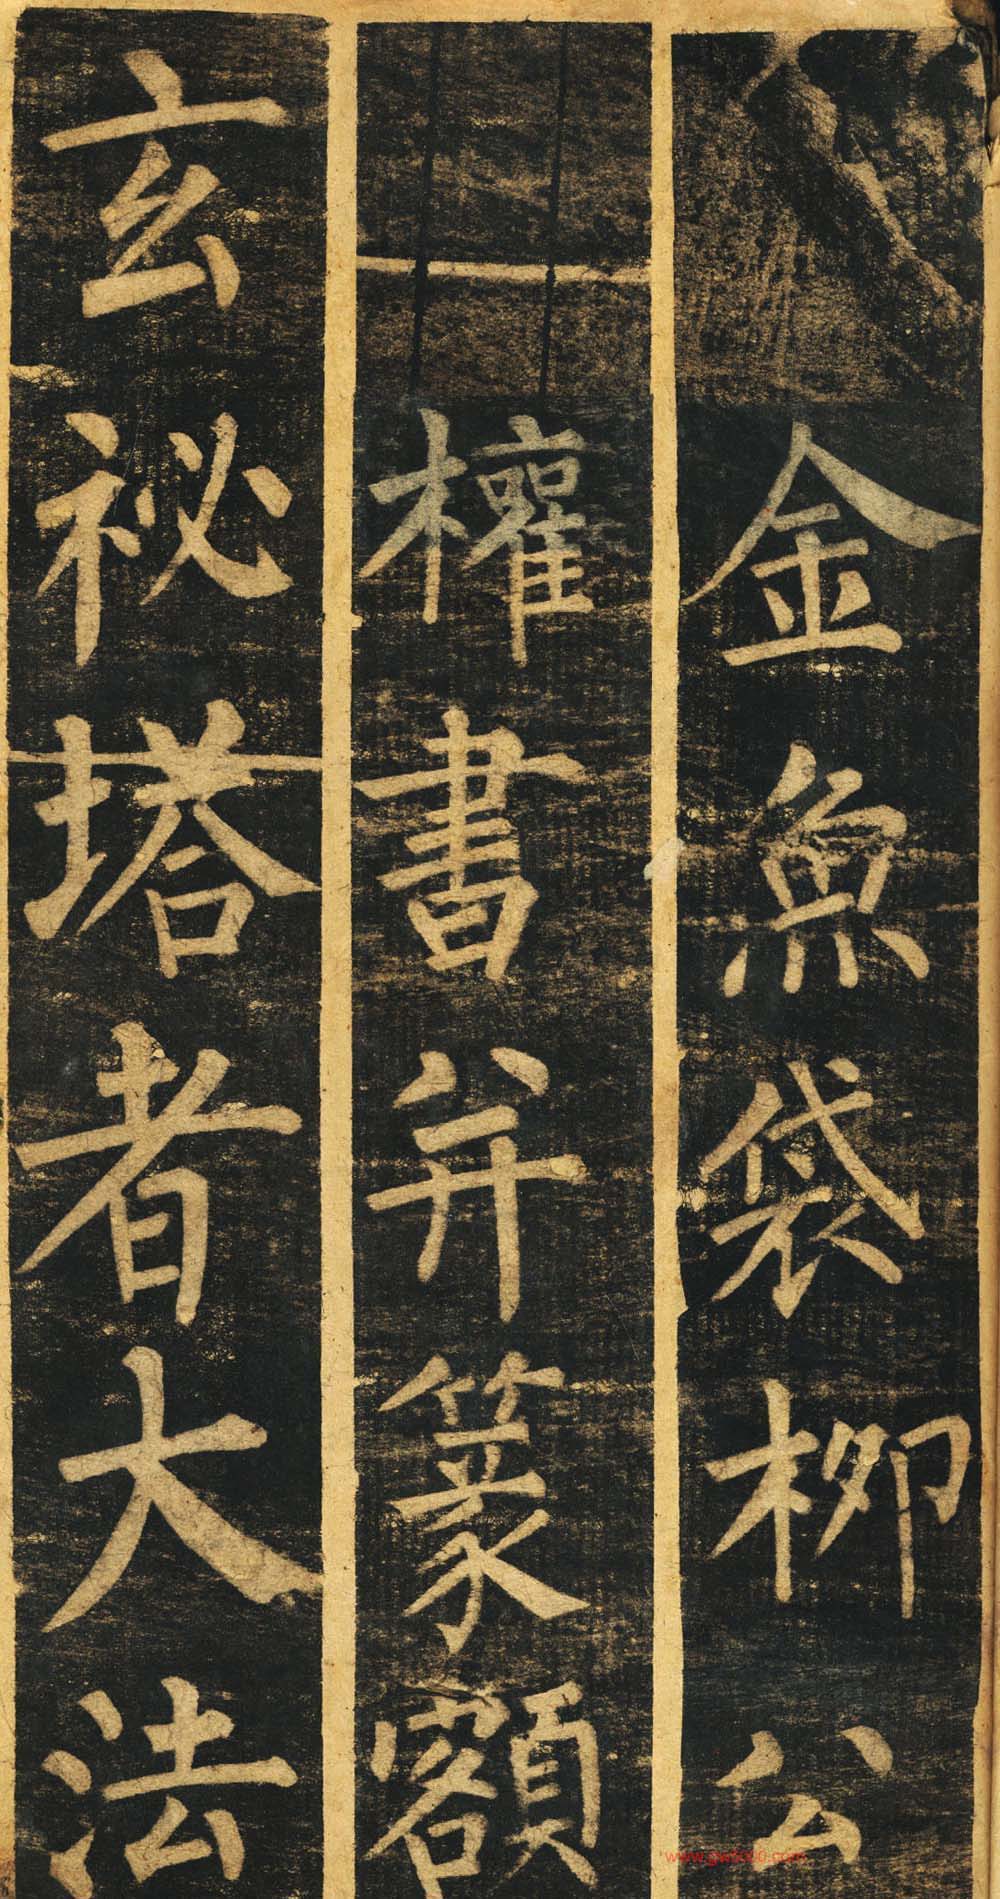 金魚袋柳公
權書并篆額
玄祕塔者大法
www.gwz000.com